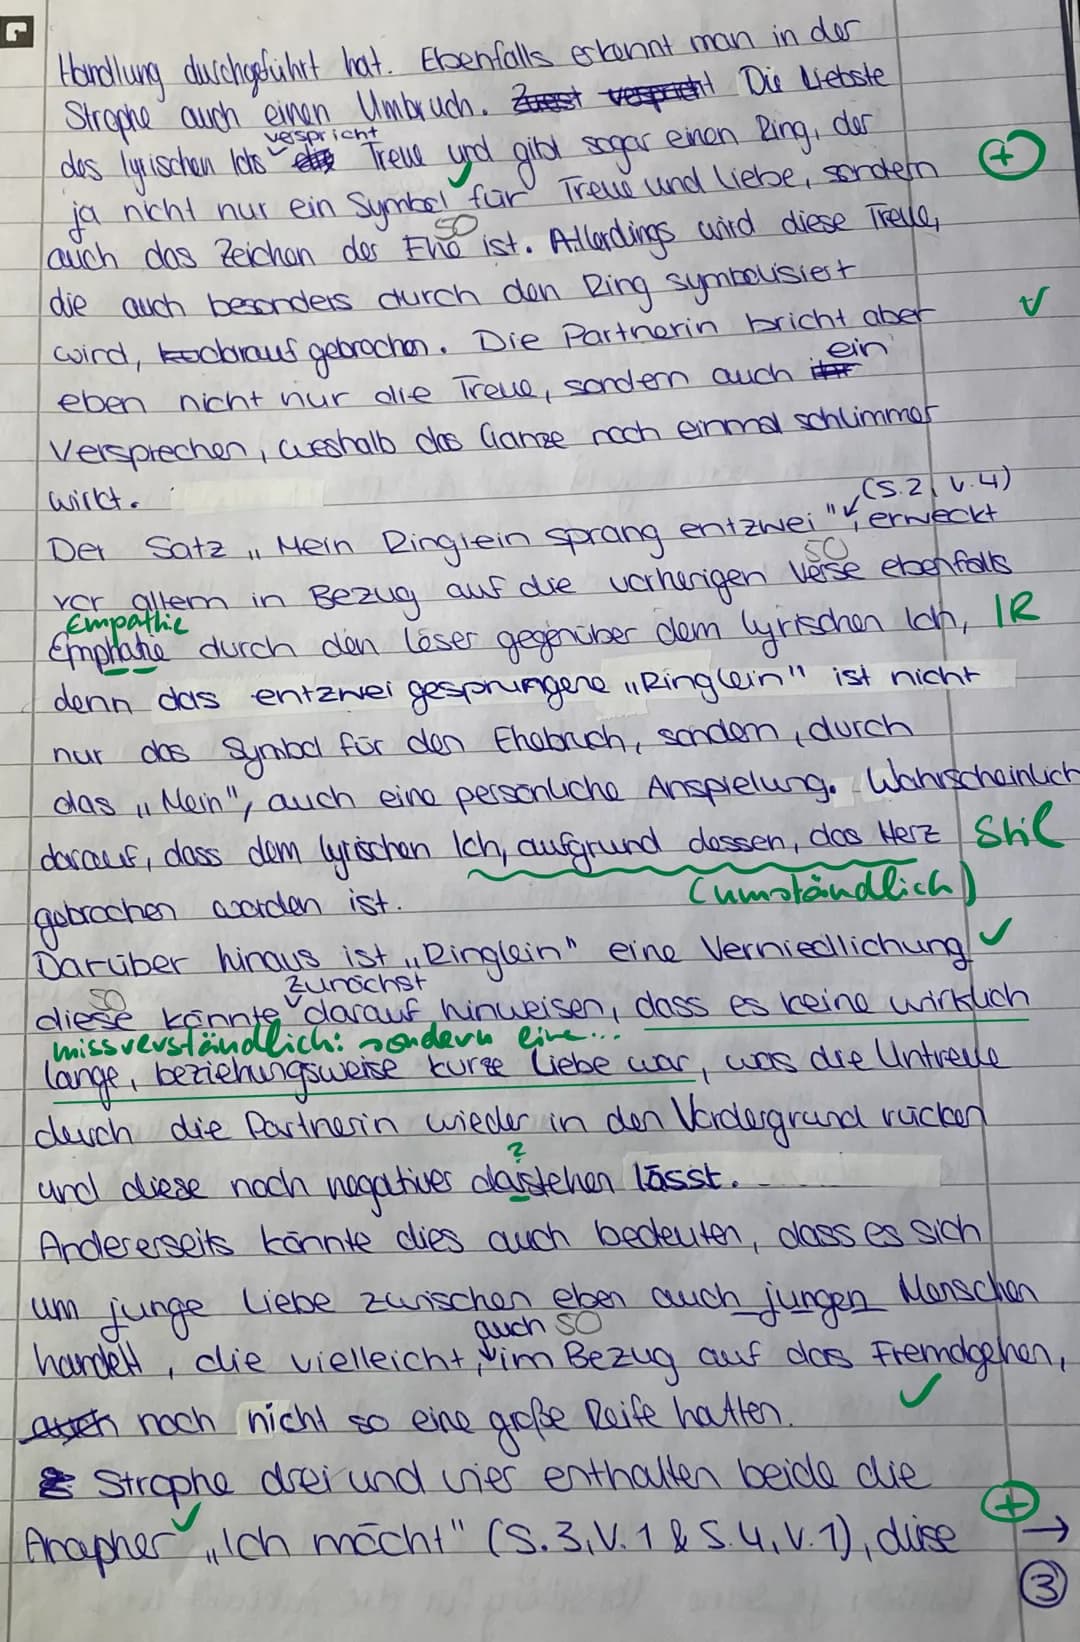 Handlung durchgeführt hat. Ebenfalls erkennt man in der
Strophe auch einen Umbruch. Zuerst verspricht Die Liebste
verspricht
des lyrischen Ichs die Treue und gibt sogar einen Ring, der
+
ja nicht nur ein Symbol für Treue und Liebe, sondern
so
auch das Zeichen der Ehe ist. Allerdings wird diese Treue,
die auch besonders durch den Ring symbolisiert
wird, gebrochen. Die Partnerin bricht aber
ein
eben nicht nur die Treue, sondern auch ihr
Versprechen, weshalb das Ganze noch einmal schlimmer
wirkt.
(S.2, V.4)
Der Satz „Mein Ringlein sprang entzwei", erweckt
so
vor allem in Bezug auf die vorherigen Verse ebenfalls
Empathie
Emphatie durch den Leser gegenüber dem lyrischen Ich, IR
denn das entzwei gesprungene „Ringlein" ist nicht
nur das Symbol für den Ehebruch, sondern, durch
das „Mein", auch eine persönliche Anspielung. Wahrscheinlich
darauf, dass dem lyrischen Ich, aufgrund dessen, das Herz Stil
(umständlich)
gebrochen worden ist.
Darüber hinaus ist „Ringlein" eine Verniedlichung
so zunächst
diese könnte darauf hinweisen, dass es keine wirklich
missverständlich: sondern eine...
lange, beziehungsweise kurze Liebe war, was die Untreue
durch die Partnerin wieder in den Vordergrund rücken
?
und diese noch negativer darstehen lässt.
Andererseits könnte dies auch bedeuten, dass es sich
um junge Liebe zwischen eben auch jungen Menschen
auch so
handelt, die vielleicht, im Bezug auf das Fremdgehen,
auch noch nicht so eine große Reife hatten.
Strophe drei und vier enthalten beide die
+
Anapher „Ich möcht" (S.3, V.1 & S.4, V.1), diese →
3